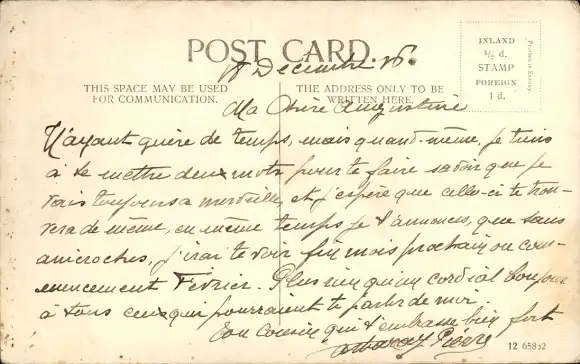 POST CARD.
INLAND
½ d.
STAMP
FOREIGN
1 d.
Printed in Saxony.
18 Decembre
THIS SPACE MAY BE USED
FOR COMMUNICATION.
THE ADDRESS ONLY TO BE
WRITTEN HERE.
Ma Chère Augustine
N'ayant guère de temps, mais quand-même, je tiens
à te mettre deux mots pour te faire savoir que je
vais toujours a merveille, et j'espère que celle-ci te trou-
vera de même, en même temps je t'annonces, que sans
anicroches, j'irai te voir fin mois prochain ou com-
mencement Fevrier. Plus rien qu'un cordial bonjour
à tous ceux qui pourraient te parler de moi.
Ton Cousin qui t'embrasse bien fort
12 65852